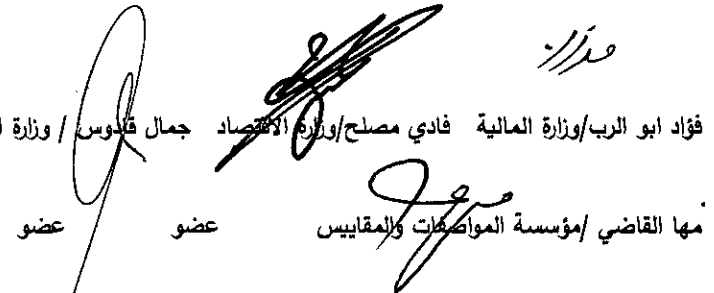 فؤاد ابو الرب/وزارة المالية فادي مصلح/وزارة الاقتصاد جمال قادوس / وزارة
مها القاضي /مؤسسة المواصفات والمقاييس عضو عضو